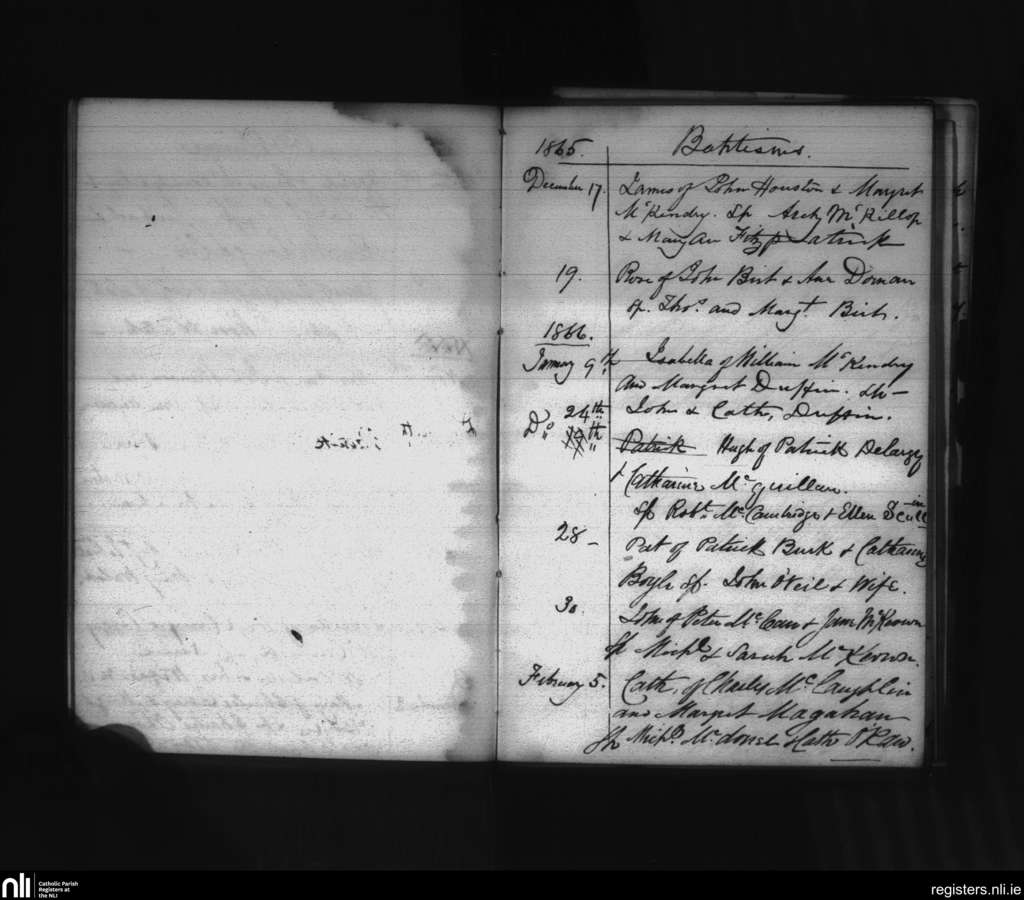 1865. Baptisms.
December 17. James of John Houston & Margret
McKendry. Sp Archy McKillop
& Mary An Fitzpatrick
19. Rose of John Birt & Ann Dornan
sp. Thos. and Margt. Birt.
1866.
January 9th Isabella of William McKendry
and Margret Duffin. Sp -
John & Cath. Duffin.
24th
Do 19th Patrick Hugh of Patrick Delargy
& Catharine McQuillan.
Sp Robt. McCambridge & Ellen Scullin
28 - Pat of Patrick Burk & Catharine
Boyle Sp. John O'Neil & Wife.
30. John of Peter McCann & Jane McKeown
Sp Michl & Sarah McKeown.
February 5. Cath. of Charles McLaughlin
and Margret Magahan
Sp Michl. McDonel & Cath O'Raw.
nli Catholic Parish
Registers at
the NLI
registers.nli.ie